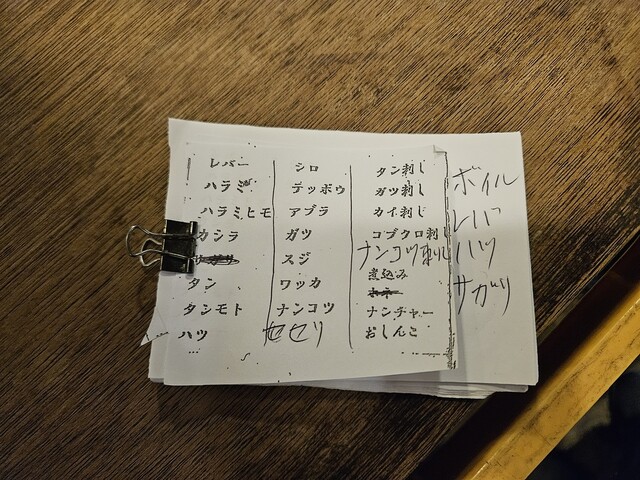 レバー
ハラミ
ハラミヒモ
カシラ
タン
タンモト
ハツ
シロ
テッポウ
アブラ
ガツ
スジ
ワッカ
ナンコツ
セセリ
タン刺し
ガツ刺し
カイ刺し
コブクロ刺し
ナンコツ刺し
煮込み
ナンチャー
おしんこ
ボイル
レバ
ハツ
サガリ